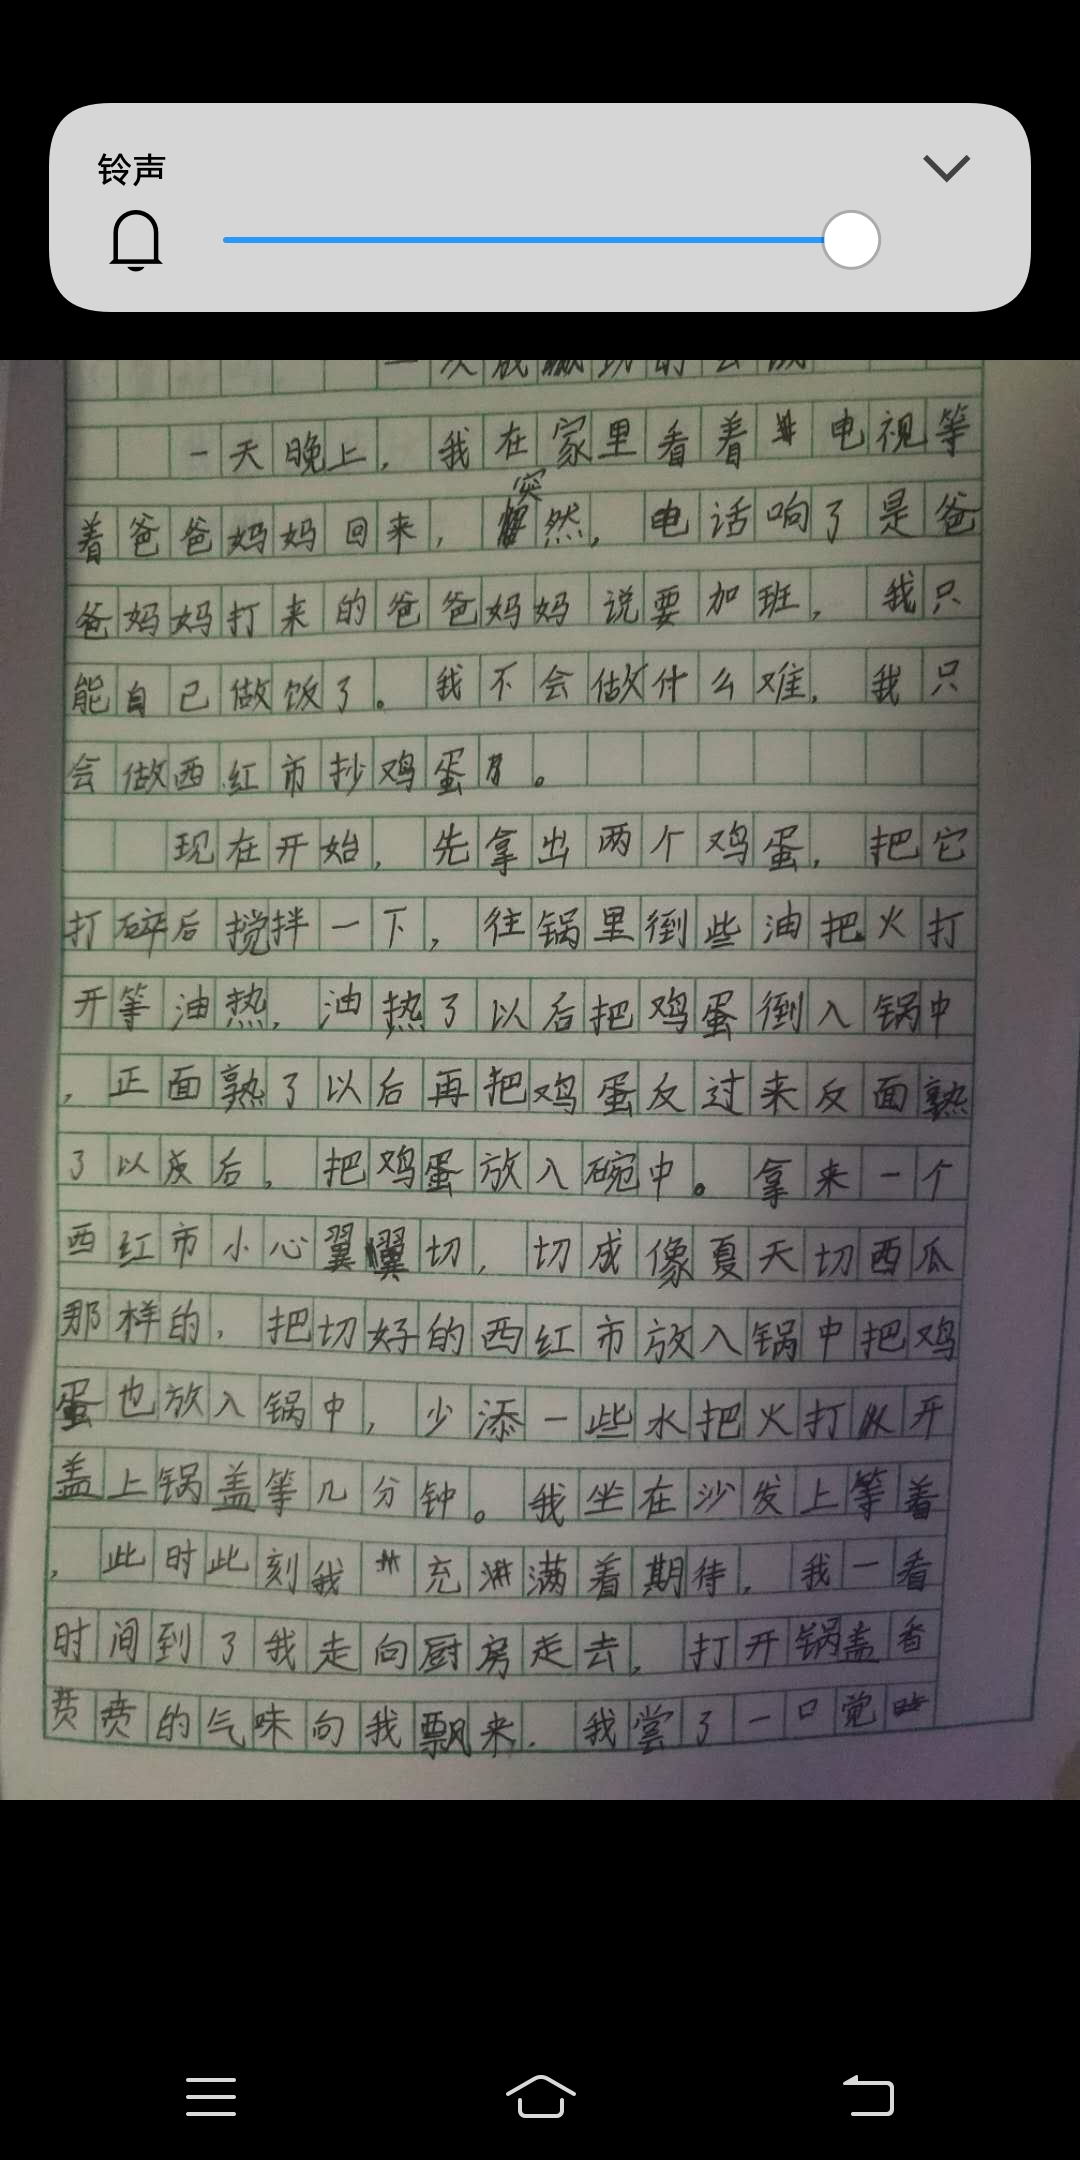 铃声
一天晚上，我在家里看着电视等
突
着爸爸妈妈回来，然，电话响了是爸
爸妈妈打来的爸爸妈妈说要加班，我只
能自己做饭了。我不会做什么难，我只
会做西红市抄鸡蛋。
现在开始，先拿出两个鸡蛋，把它
打碎后搅拌一下，往锅里倒些油把火打
开等油热，油热了以后把鸡蛋倒入锅中
，正面熟了以后再把鸡蛋反过来反面熟
了以后，把鸡蛋放入碗中。拿来一个
西红市小心翼翼切，切成像夏天切西瓜
那样的，把切好的西红市放入锅中把鸡
蛋也放入锅中，少添一些水把火打开
盖上锅盖等几分钟。我坐在沙发上等着
，此时此刻我充满着期待，我一看
时间到了我走向厨房走去，打开锅盖香
的气味向我飘来．我尝了一口觉